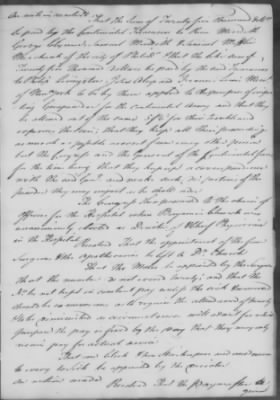 On motion resolved
That the Sum of Twenty five thousand dollars
be paid by the Continental Treasurers to Thos. Mredith
George Clymer, Samuel Meredith & Samuel Mifflin
Merchants of the city of Philada & that the like Sum of
Twenty five thousand dollars be paid by the said Treasurers
to Philip Livingston, John Alsop and Francis Lewis Merchts
of New York to be by them applied to the purpose of impor-
ting Gunpowder for the continental Army and that they
be allowed out of the same 5 p Ct for their trouble and
expence therein; that they keep all their proceedings
as much as possible a secret from every other person
but the Congress and the General of the Continental forces
for the time being; that they keep a correspondence
with the said General and make such of the
powder they may import as he shall order
The Congress then proceeded to the choice of
Officers for the Hospital when Benjamin Church was
unanimously elected as Director of & chief Physician
in the Hospital
Resolved That the appointment of the four
Surgeons & the apothecaries be left to Dr Church
That the Mates be appointed by the Surgeons
that the number do not exceed twenty; and that the
No. be not kept in constant pay unless the sick & wounded
should be so numerous as to require the attendance of twenty
& to be diminished as circumstances will admit for which
purpose the pay is fixed by the day that they may only
receive pay for actual service
That one Clerk two Storekeepers and one nurse
to every sick be appointed by the director
On motion made Resolved That the paymaster
general